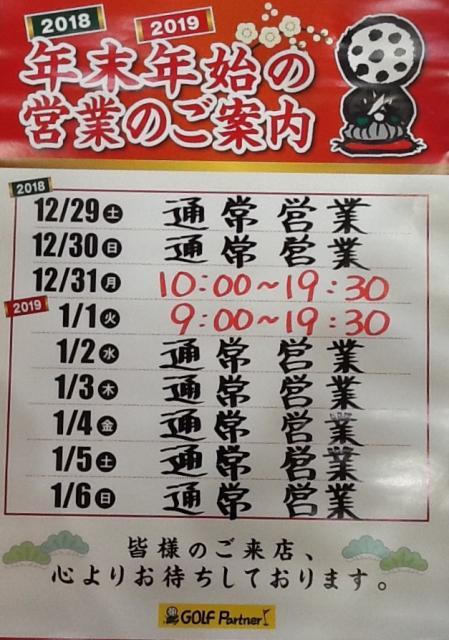 2018 2019
年末年始の
営業のご案内
2018
12/29土 通常営業
12/30日 通常営業
12/31月 10:00～19:30
2019
1/1火 9:00～19:30
1/2水 通常営業
1/3木 通常営業
1/4金 通常営業
1/5土 通常営業
1/6日 通常営業
皆様のご来店、
心よりお待ちしております。
GOLF Partner